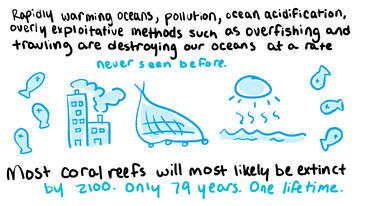 Rapidly warming oceans, pollution, ocean acidification,
overly exploitative methods such as overfishing and
trawling are destroying our oceans at a rate
never seen before.
Most coral reefs will most likely be extinct
by 2100. Only 79 years. One lifetime.